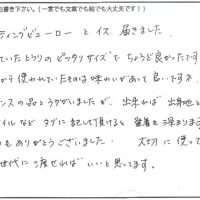 お書き下さい。(一言でも文章でも絵でも大丈夫です！)
ティングビューロー と イス 届きました。
ていたとうりの ピッタリサイズで ちょうど良かったです
から 使われていたものは 味わいがあって 良いですネ
ンスの品とうかがいましたが、出来れば 出身地と
イルなど タグに記して頂けると 愛着も深まります
もありがとうございました。 大切に 使って
世代に渡せれば いいと 思ってます。